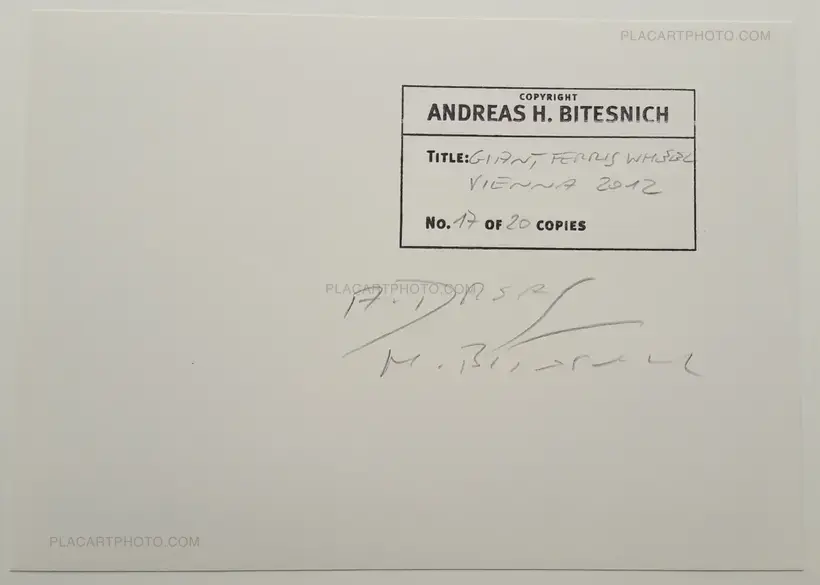 PLACARTPHOTO.COM
COPYRIGHT
ANDREAS H. BITESNICH
TITLE: GIANT FERRIS WHEEL
VIENNA 2012
NO. 17 OF 20 COPIES
PLACARTPHOTO.COM
PLACARTPHOTO.COM